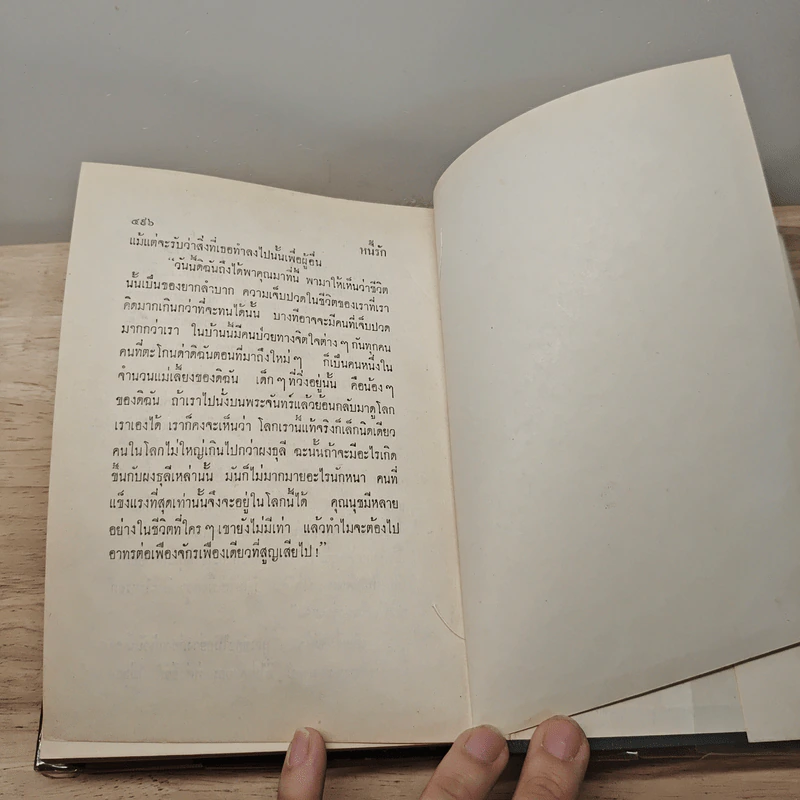 ๔๙๖
หนี้รัก
แม้แต่จะรับว่าสิ่งที่เธอทำลงไปนั้นเพื่อผู้อื่น
“วันนี้ดิฉันถึงได้พาคุณมาที่นี่ พามาให้เห็นว่าชีวิต
นั้นเป็นของยากลำบาก ความเจ็บปวดในชีวิตของเราที่เรา
คิดมากเกินกว่าที่จะทนได้นั้น บางทีอาจจะมีคนที่เจ็บปวด
มากกว่าเรา ในบ้านนี้มีคนป่วยทางจิตใจต่าง ๆ กันทุกคน
คนที่ตะโกนด่าดิฉันตอนที่มาถึงใหม่ ๆ ก็เป็นคนหนึ่งใน
จำนวนแม่เลี้ยงของดิฉัน เด็ก ๆ ที่วิ่งอยู่นั้น คือน้อง ๆ
ของดิฉัน ถ้าเราไปนั่งบนพระจันทร์แล้วย้อนกลับมาดูโลก
เราเองได้ เราก็คงจะเห็นว่า โลกเรานี้แท้จริงก็เล็กนิดเดียว
คนในโลกไม่ใหญ่เกินไปกว่าผงธุลี ฉะนั้นถ้าจะมีอะไรเกิด
ขึ้นกับผงธุลีเหล่านั้น มันก็ไม่มากมายอะไรนักหนา คนที่
แข็งแรงที่สุดเท่านั้นจึงจะอยู่ในโลกนี้ได้ คุณนุชมีหลาย
อย่างในชีวิตที่ใคร ๆ เขายังไม่มีเท่า แล้วทำไมจะต้องไป
อาทรต่อเฟืองจักรเฟืองเดียวที่สูญเสียไป !”